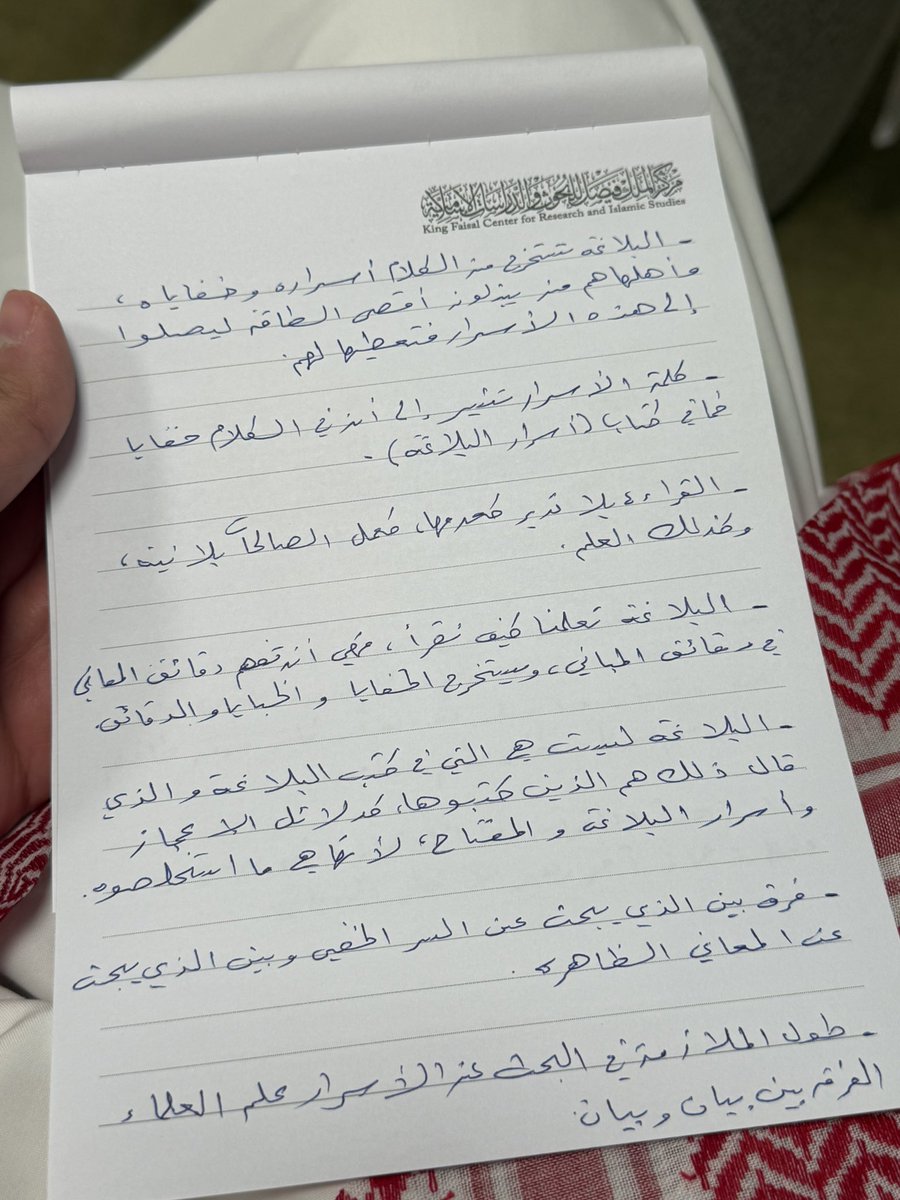 مركز الملك فيصل للبحوث والدراسات الإسلامية
King Faisal Center for Research and Islamic Studies
- البلاغة تستخرج من الكلام أسراره وخفاياه،
وأهلها هم من يبذلون أقصى الطاقة ليصلوا
إلى هذه الأسرار فتعطيها لهم.
- كلمة الأسرار تشير إلى أن في الكلام خفايا
كما في كتاب (أسرار البلاغة).
- القراءة بلا تدبر كعدمها، كعمل الصالحات بلا نية،
وكذلك العلم.
- البلاغة تعلمنا كيف نقرأ، فهي أن تفهم دقائق المعاني
في دقائق المباني، ويستخرج الخفايا والخبايا والدقائق.
- البلاغة ليست هي التي في كتب البلاغة والذي
قال ذلك هم الذين كتبوها، كدلائل الإعجاز
وأسرار البلاغة والمفتاح؛ لأنها هي ما استخلصوه.
- فرق بين الذي يبحث عن السر الخفي وبين الذي يبحث
عن المعاني الظاهرة.
- طول الملازمة في البحث عن الأسرار علم العلماء
الفرق بين بيان وبيان.